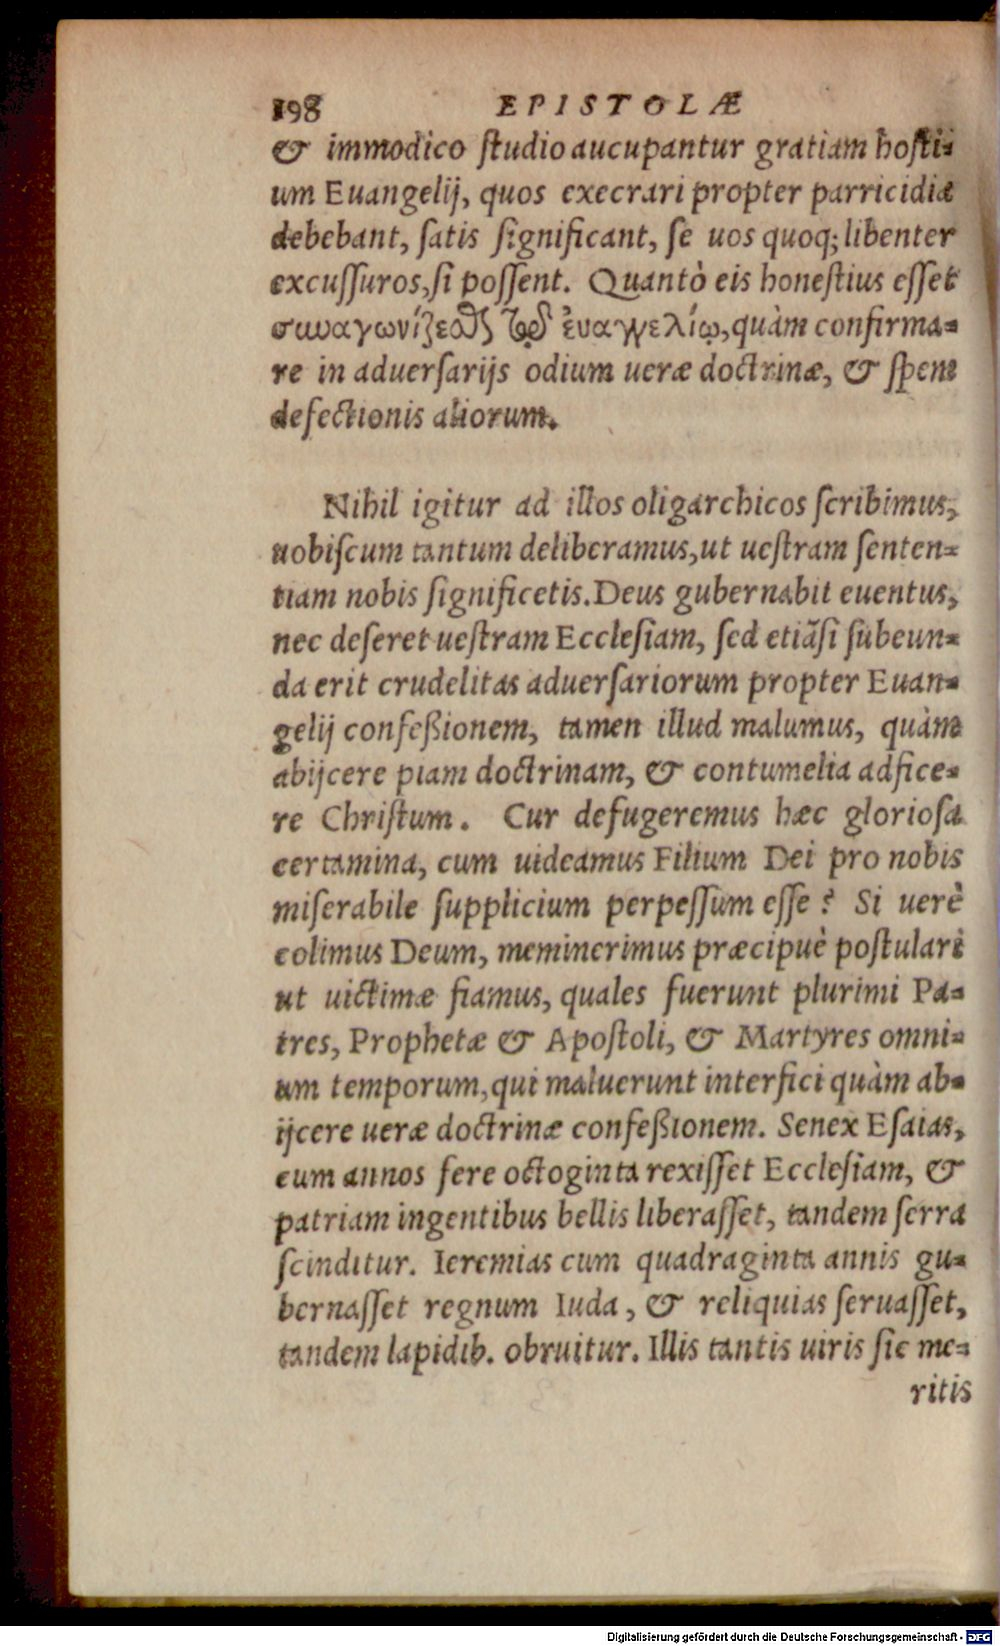 198 EPISTOLÆ
& immodico studio aucupantur gratiam hosti-
um Euangelij, quos execrari propter parricidia
debebant, satis significant, se uos quoq; libenter
excussuros, si possent. Quantò eis honestius esset
συναγωνίζεσθαι τῷ ἐυαγγελίῳ, quàm confirma-
re in aduersarijs odium ueræ doctrinæ, & spem
defectionis aliorum.
Nihil igitur ad illos oligarchicos scribimus,
uobiscum tantum deliberamus, ut uestram senten-
tiam nobis significetis. Deus gubernabit euentus,
nec deseret uestram Ecclesiam, sed etiãsi subeun-
da erit crudelitas aduersariorum propter Euan-
gelij confeßionem, tamen illud malumus, quàm
abijcere piam doctrinam, & contumelia adfice-
re Christum. Cur defugeremus hæc gloriosa
certamina, cum uideamus Filium Dei pro nobis
miserabile supplicium perpessum esse? Si uerè
colimus Deum, meminerimus præcipuè postulari
ut uictimæ fiamus, quales fuerunt plurimi Pa-
tres, Prophetæ & Apostoli, & Martyres omni-
um temporum, qui maluerunt interfici quàm ab-
ijcere ueræ doctrinæ confeßionem. Senex Esaias,
cum annos fere octoginta rexisset Ecclesiam, &
patriam ingentibus bellis liberasset, tandem serra
scinditur. Ieremias cum quadraginta annis gu-
bernasset regnum Iuda, & reliquias seruasset,
tandem lapidib. obruitur. Illis tantis uiris sic me-
ritis
Digitalisierung gefördert durch die Deutsche Forschungsgemeinschaft - DFG